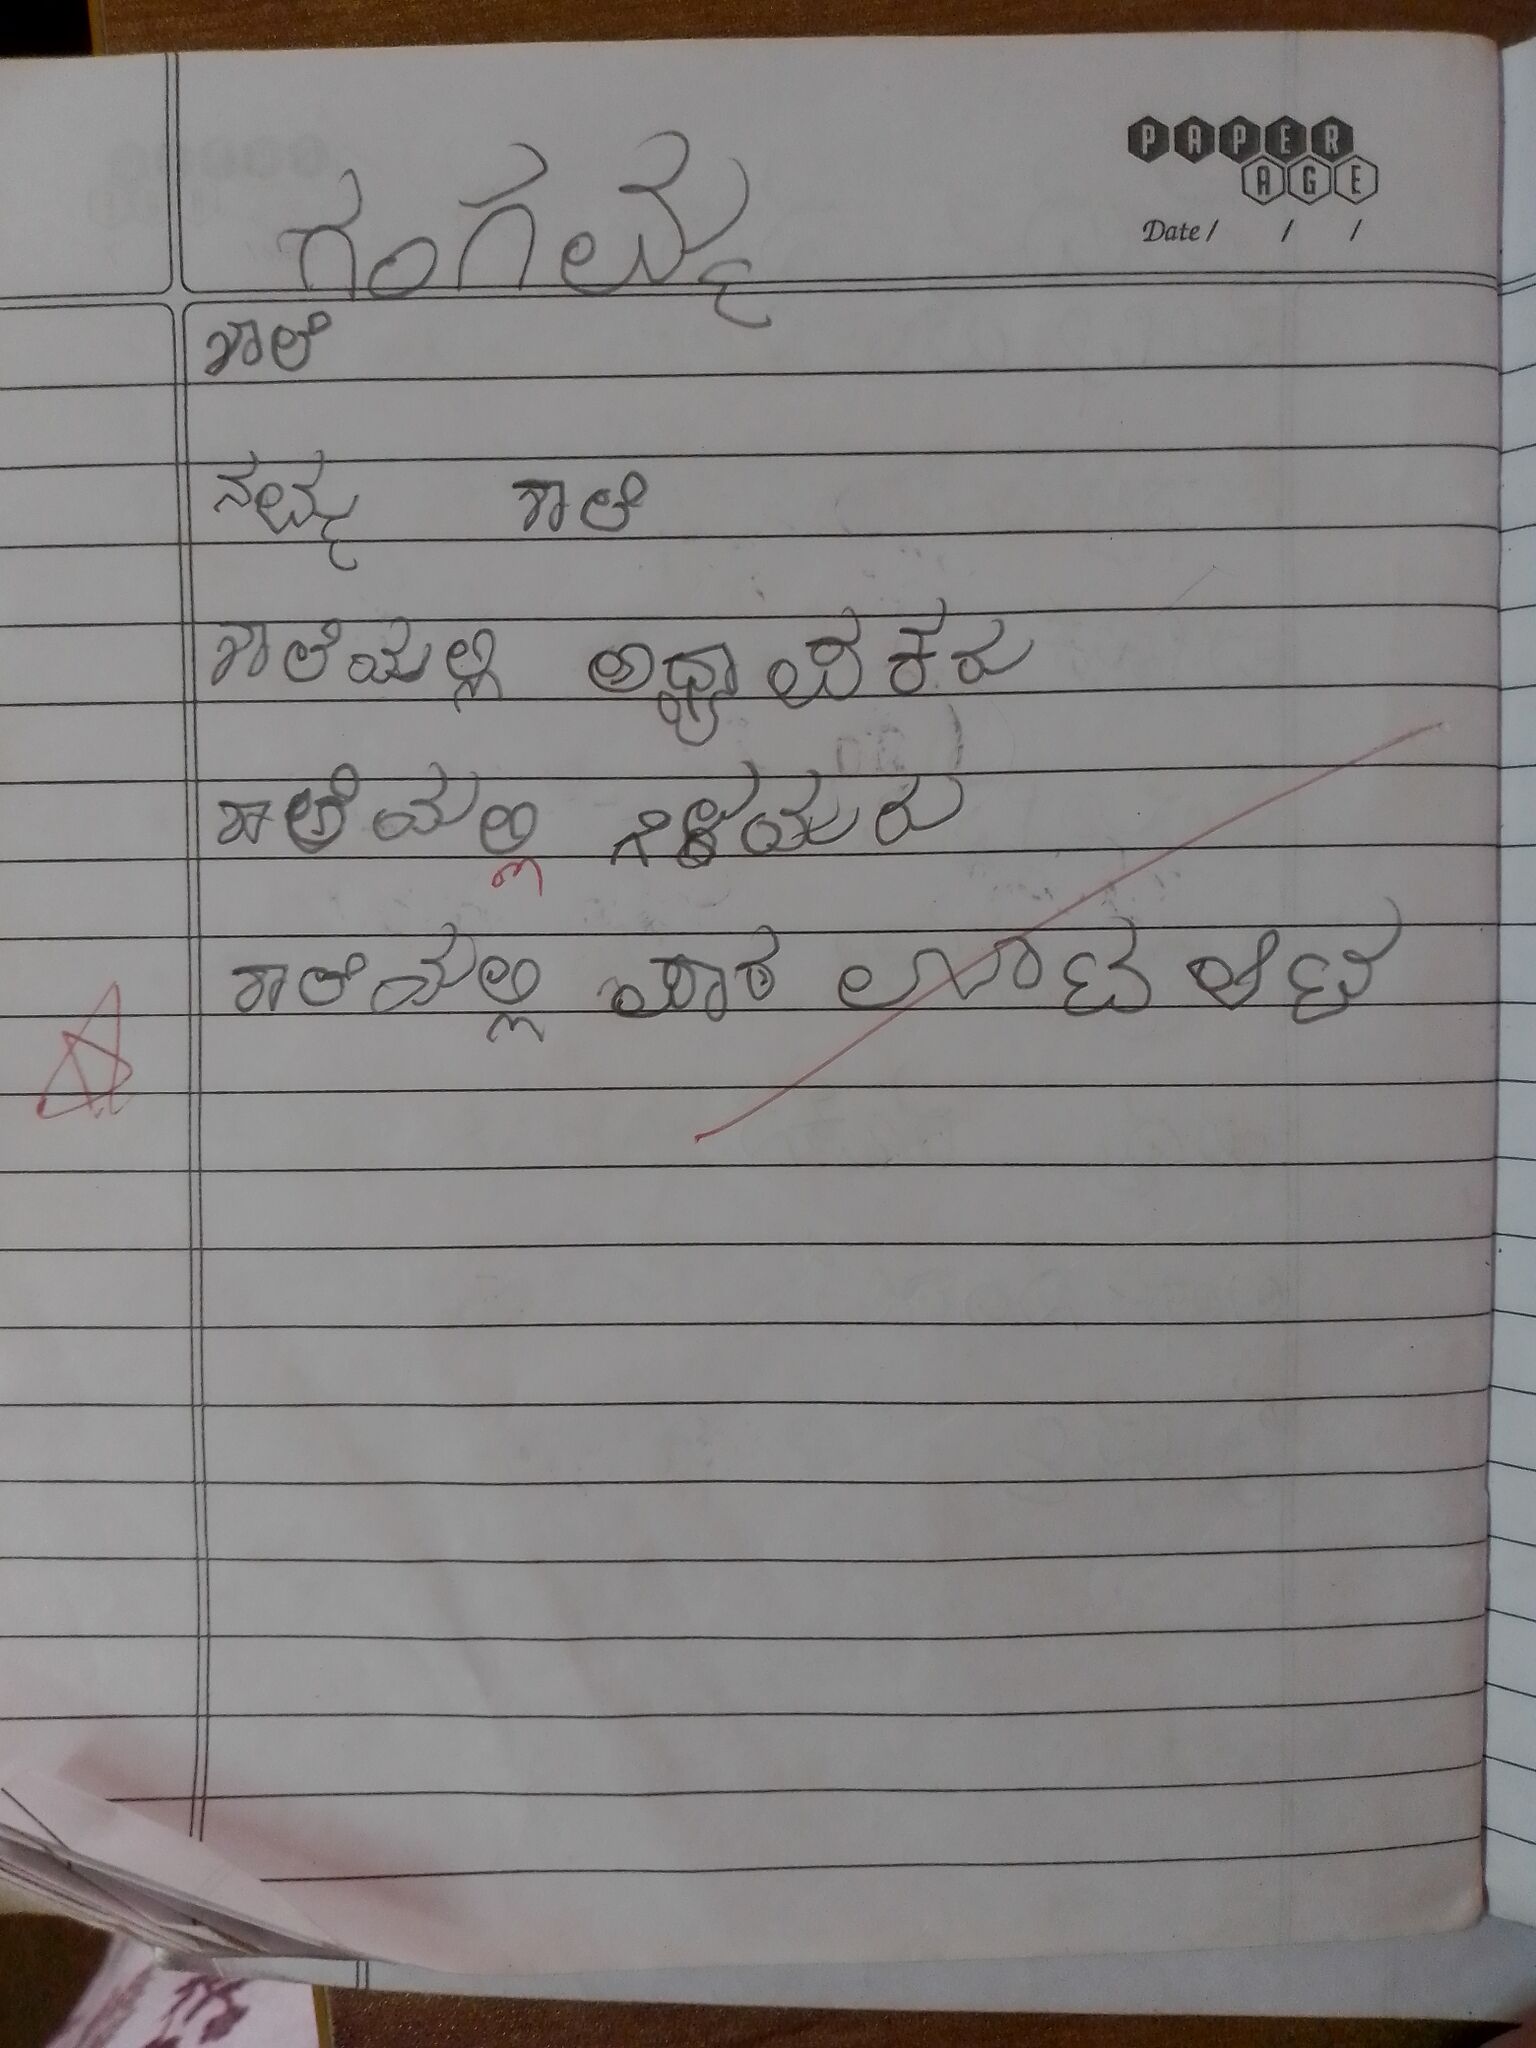 PAPER
AGE
Date / / /
ಗಂಗಮ್ಮ
ಶಾಲೆ
ನಮ್ಮ ಶಾಲೆ
ಶಾಲೆಯಲ್ಲಿ ಅಧ್ಯಾಪಕರು
ಶಾಲೆಯಲ್ಲಿ ಗೆಳೆಯರು
ಶಾಲೆಯಲ್ಲಿ ಪಾಠ ಊಟ ಆಟ